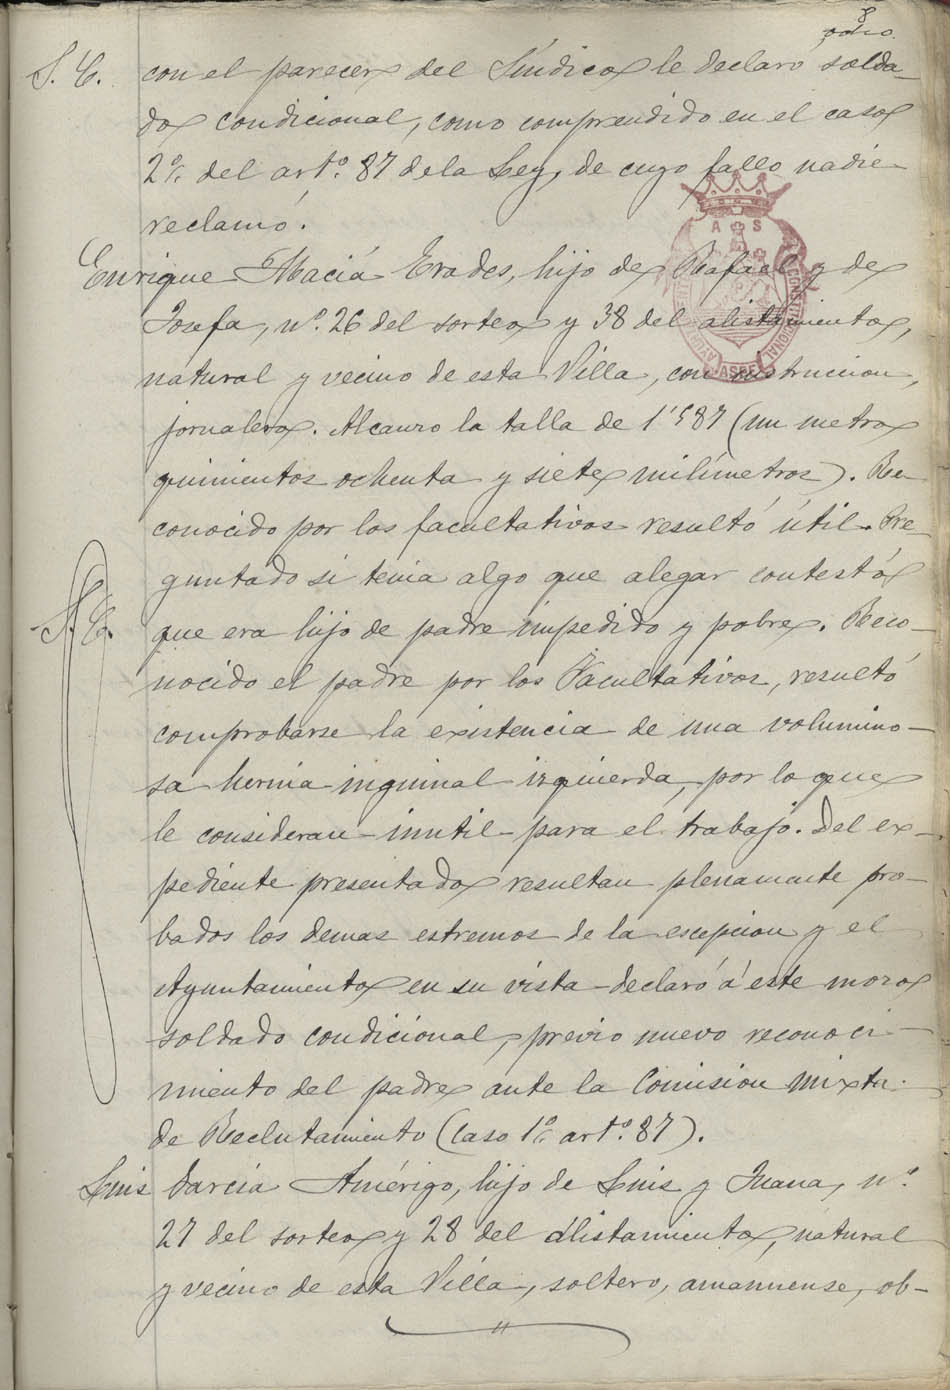 8
ocho.
S. C. con el parecer del Síndico le declaró solda-
do condicional, como comprendido en el caso
2º. del artº. 87 de la Ley, de cuyo fallo nadie
reclamó.
Enrique Maciá Erades, hijo de Rafael y de
Josefa, nº. 26 del sorteo y 38 del alistamiento,
natural y vecino de esta Villa, con instruccion,
jornalero. Alcanzo la talla de 1'587 (un metro
quinientos ochenta y siete milímetros). Re
conocido por los facultativos resultó útil. Pre-
guntado si tenia algo que alegar contestó
S. C. que era hijo de padre impedido y pobre. Reco-
nocido el padre por los Facultativos, resultó
comprobarse la existencia de una volumino-
sa hernia inguinal izquierda, por lo que
le consideran inutil para el trabajo. Del ex-
pediente presentado resultan plenamente pro-
bados los demas estremos de la escepcion y el
Ayuntamiento en su vista declaró á este mozo
soldado condicional, previo nuevo reconoci-
miento del padre ante la Comision mixta
de Reclutamiento (Caso 1º. artº. 87).
Luis García Amérigo, hijo de Luis y Juana, nº.
27 del sorteo y 28 del alistamiento, natural
y vecino de esta Villa, soltero, amanuense, ob-
A S
CONSTITUCIONAL
ASPE